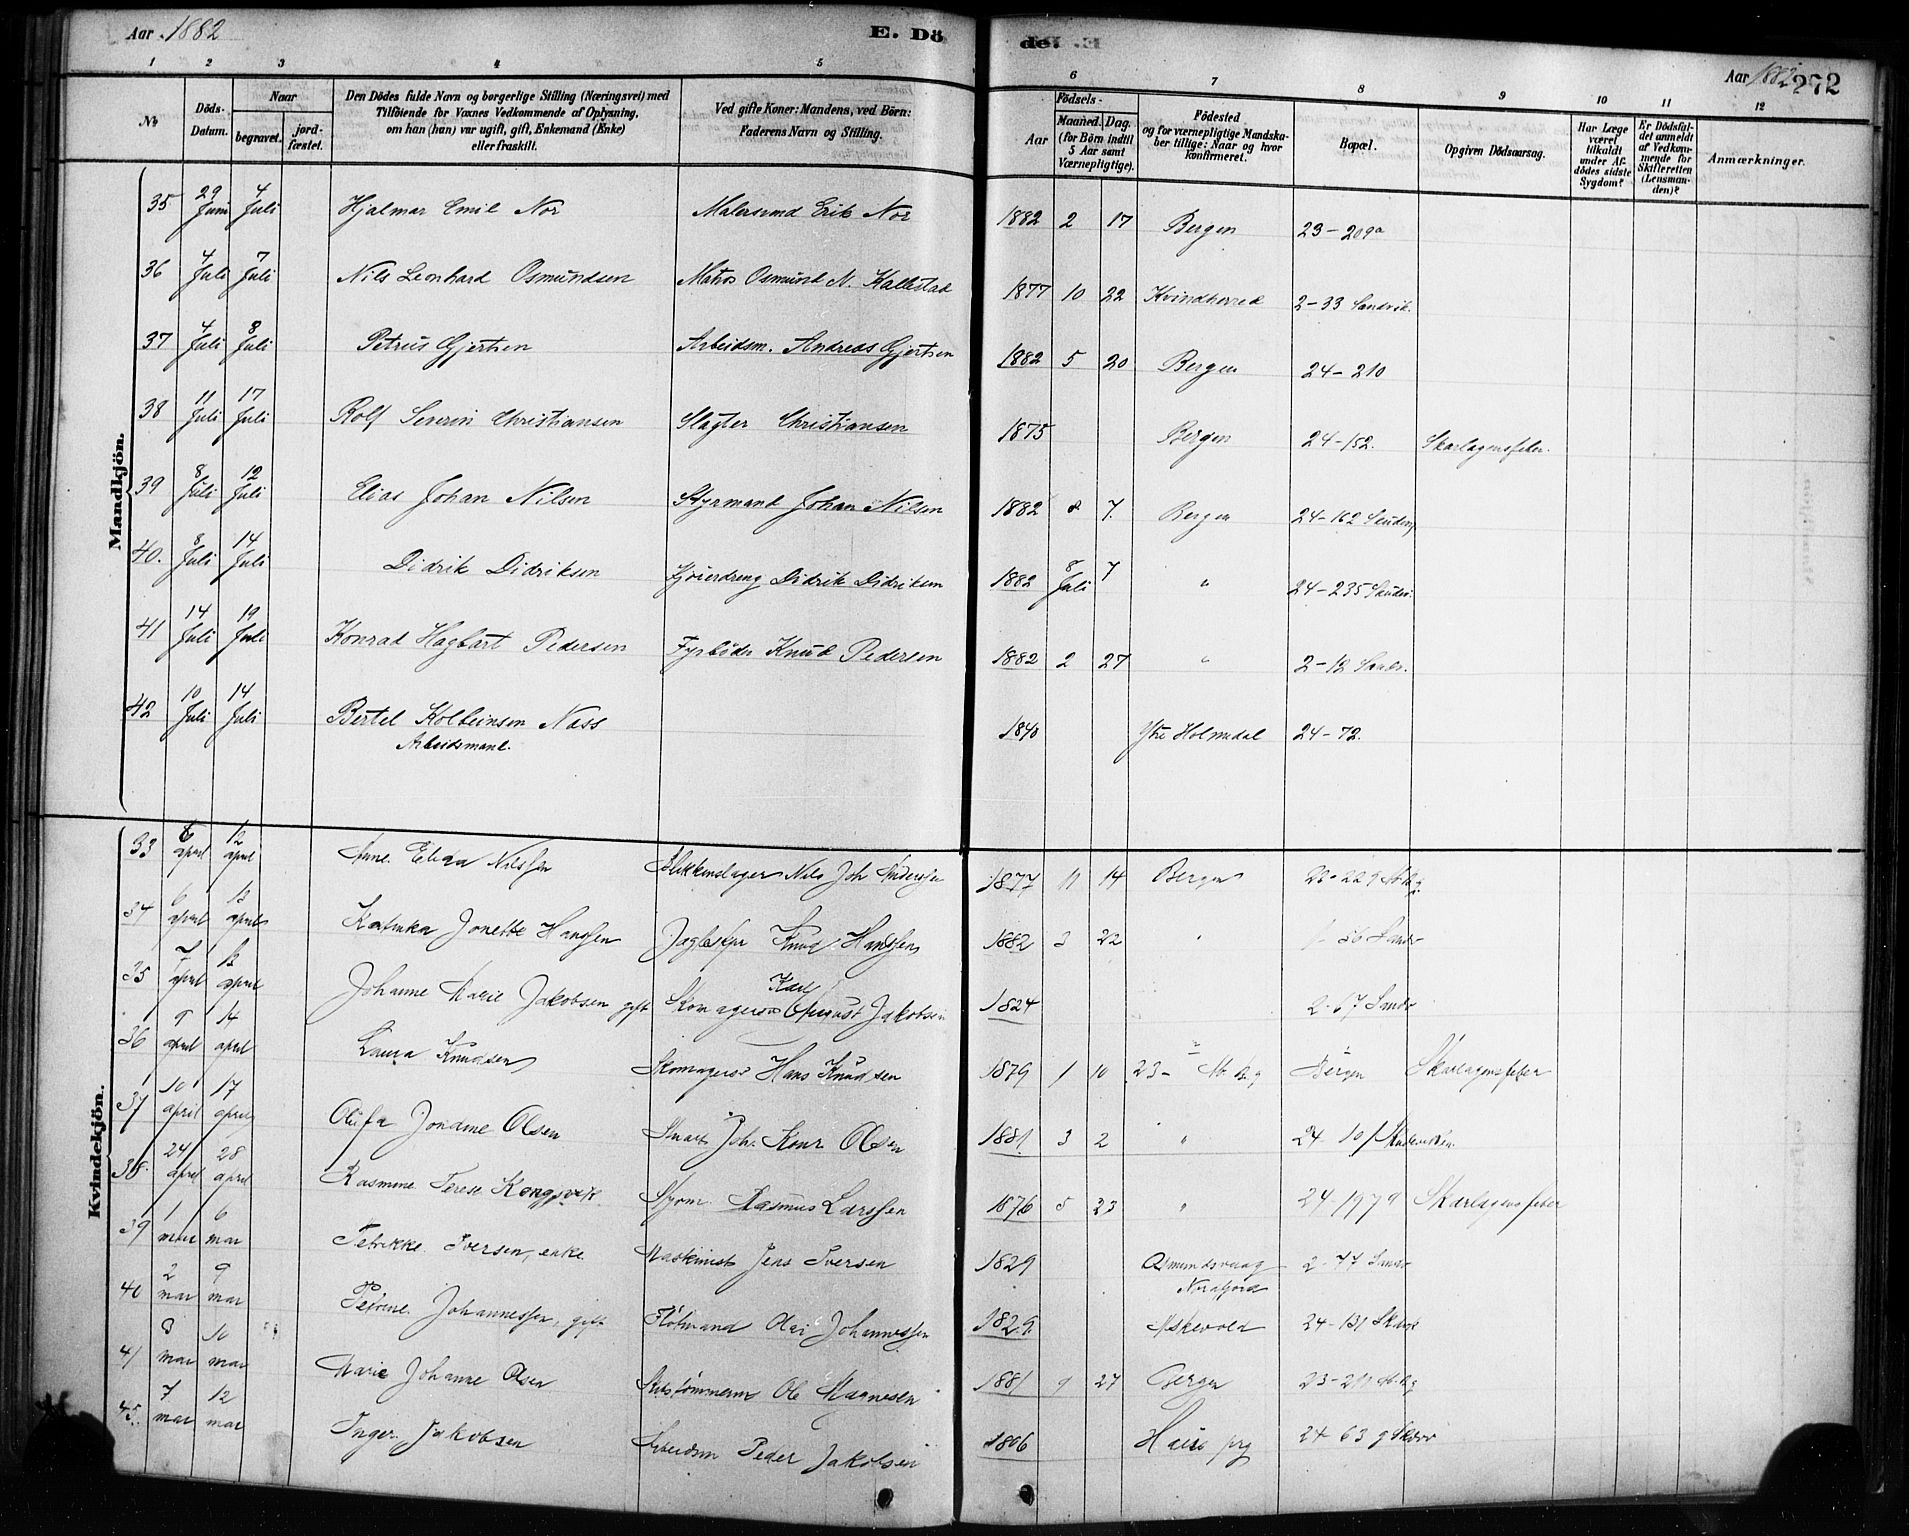 Aar 1882
E. Dö
de. E
Aar 1882 272
1 2 3 4 5 6 7 8 9 10 11 12
No
Döds-Datum.
Naar
begravet.
jord-fæstet.
Den Dödes fulde Navn og borgerlige Stilling (Næringsvei) med
Tilföiende for Voxnes Vedkommende af Oplysning,
om han (hun) var ugift, gift, Enkemand (Enke)
eller fraskilt.
Ved gifte Koner: Mandens, ved Börn:
Faderens Navn og Stilling.
Födsels-
Aar
Maaned. Dag.
(for Börn indtil
5 Aar samt
Værnepligtige).
Födested
og for værnepligtige Mandska-
ber tillige: Naar og hvor
konfirmeret.
Bopæl.
Opgiven Dödsaarsag.
Har Læge
været
tilkaldt
under Af-
dödes sidste
Sygdom?
Er Dödsfal-
det anmeldt
af Vedkom-
mende for
Skifteretten
(Lensman-
den)?
Anmærkninger.
Mandkjön.
35 29 Juni 4 Juli Hjalmar Emil Nor Malersvend Erik Nor 1882 2 17 Bergen 23-209a
36 4 Juli 7 Juli Nils Leonhard Osmundsen Matros Osmund N. Kallestad 1877 10 22 Kvindherred 2-33 Sandvik.
37 4 Juli 8 Juli Petrus Gjertsen Arbeidsm. Andreas Gjertsen 1882 5 20 Bergen 24-210
38 11 Juli 17 Juli Rolf Severin Christiansen Slagter Christiansen 1875 Bergen 24-152. Skarlagensfeber.
39 8 Juli 12 Juli Elias Johan Nilsen Styrmand Johan Nilsen 1882 7. Bergen 24-162
40. 8 Juli 14 Juli Didrik Didriksen Didrik Didriksen 1882 8 Juli 7 " 24-235
41 14 Juli 19 Juli Konrad Hagbart Pedersen Fyrböder Knud Pedersen 1882 2 27 " 2-12 Sandv.
42 10 Juli 14 Juli Bertel Kolbeinsen Næss 1840 Ytre Holmedal 24-72.
Arbeidsmand.
Kvindekjön.
33 april 12 april Anne Elida Nilssen Blikkenslager Nils Joh Andersen 1877 11 14 Bergen
34 6 april 13 april Katinka Jonette Hanssen Jagteskpr Knud Hanssen 1882 3 22 " Sandv
35 7 april 13 april Johanne Marie Jakobsen gift Skomager Karl August Jakobsen 1824 2-67 Sandv
36 9 april 14 april Laura Knudsen Skomagersv Hans Knudsen 1879 1 10 23- Bergen Skarlagensfeber
37 10 april 17 april Olufa Jondine Olsen Joh. Konr Olsen 1881 3 2 " 24
38 24 april 28 april Rasmine Terese Kongsvik Styrm. Rasmus Larssen 1876 5 23 " Skarlagensfeber
39 1 mai 6 mai Petrikke Iversen, enke Maskinist Jens Iversen 1829 Osmundsvaag 2-77 Sandv
Nordfjord
40 2 mai 9 mai Petrine Johannessen, gift Flötmand Olai Johannessen 1829. Askevold 24-131
41 3 mai 10 mai Marie Johanne Olsen Ole Magnesen 1881 9 27 Bergen
45. 7 mai 12 mai Inger Jakobsen Arbeidsm Peder Jakobsen 1806 Haus prg 24-63